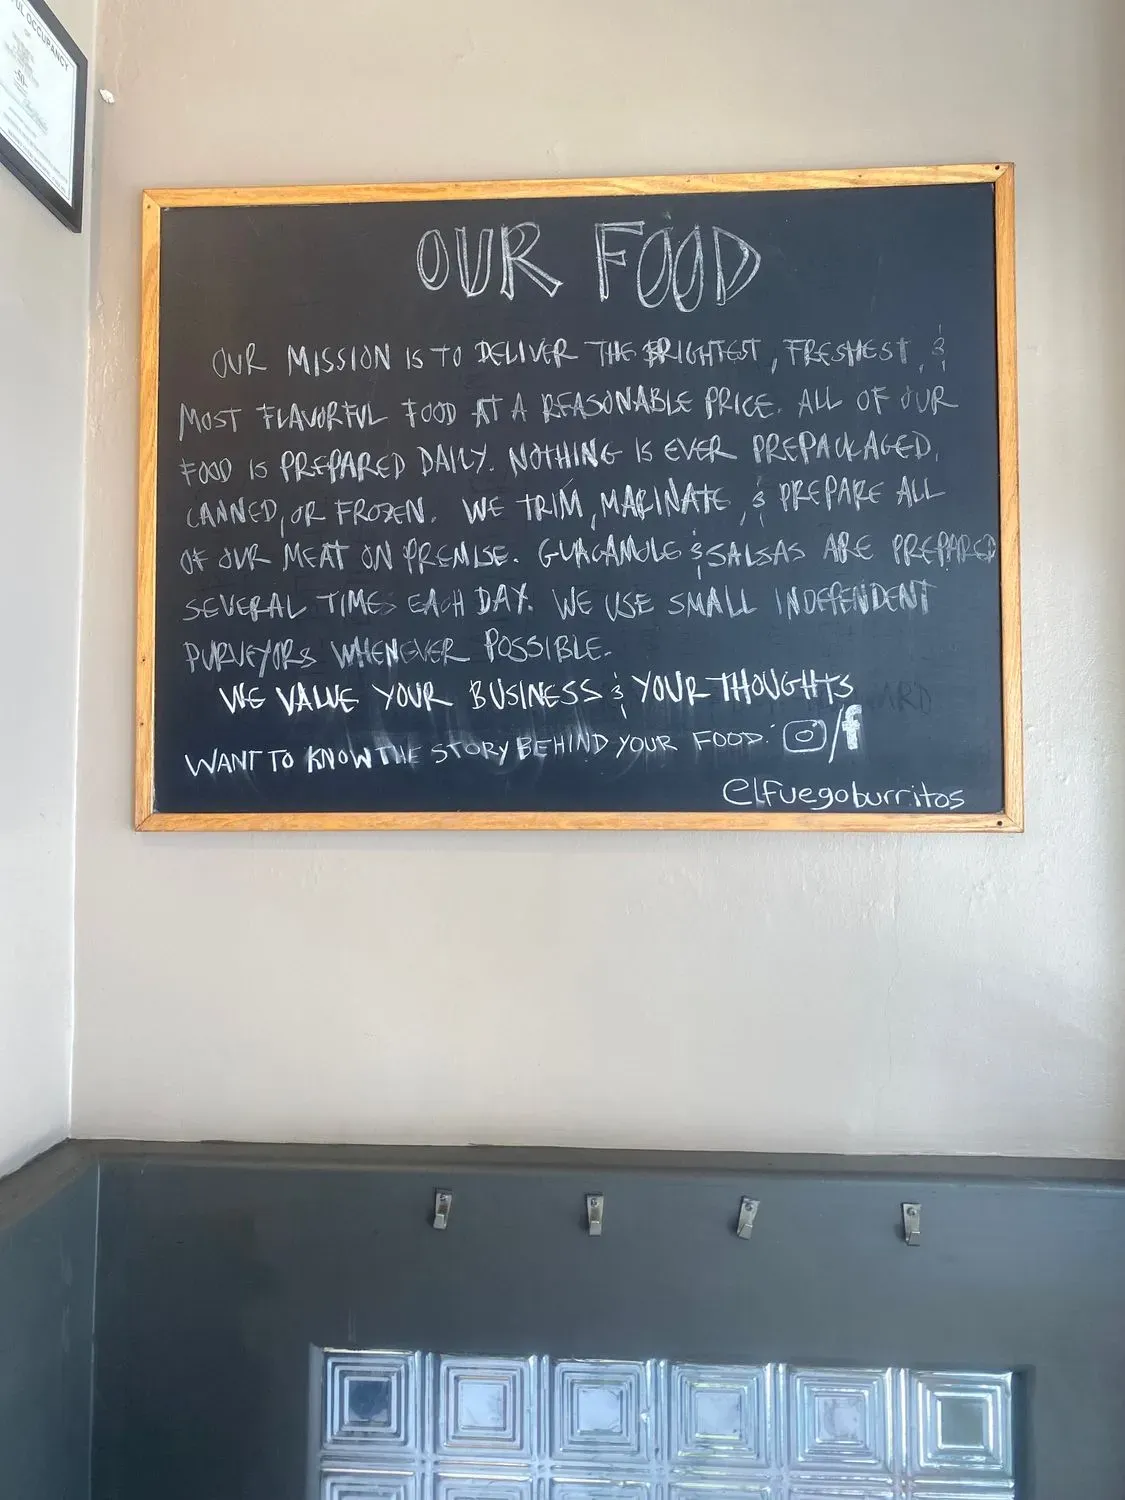 OCCUPANCY
OUR FOOD
OUR MISSION IS TO DELIVER THE BRIGHTEST, FRESHEST, &
MOST FLAVORFUL FOOD AT A REASONABLE PRICE. ALL OF OUR
FOOD IS PREPARED DAILY. NOTHING IS EVER PREPACKAGED,
CANNED, OR FROZEN. WE TRIM, MARINATE, & PREPARE ALL
OF OUR MEAT ON PREMISE. GUACAMOLE & SALSAS ARE PREPARED
SEVERAL TIMES EACH DAY. WE USE SMALL INDEPENDENT
PURVEYORS WHENEVER POSSIBLE.
WE VALUE YOUR BUSINESS & YOUR THOUGHTS
WANT TO KNOW THE STORY BEHIND YOUR FOOD: /f
@elfuegoburritos